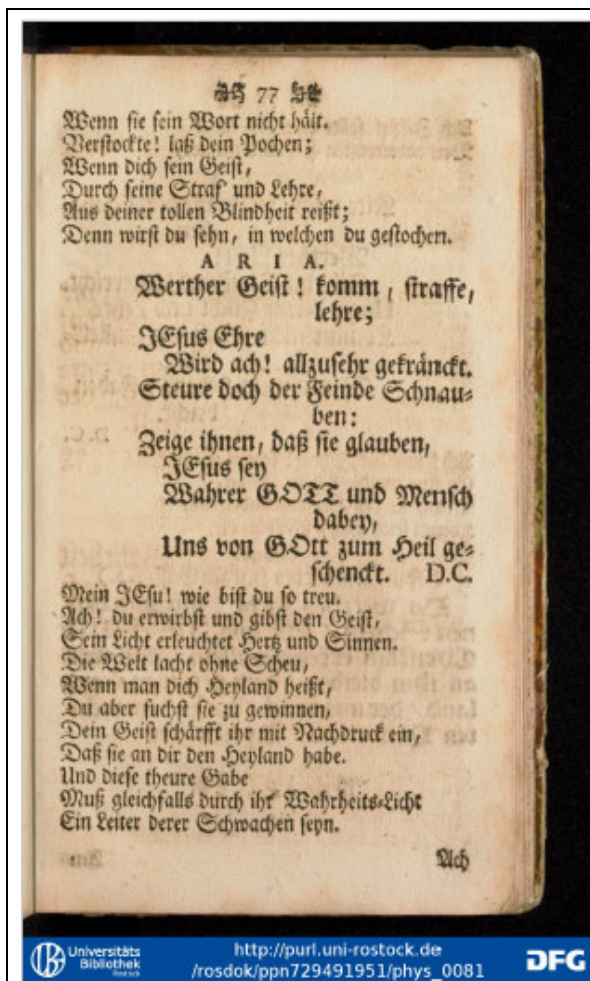 77
Wenn sie sein Wort nicht hält.
Verstockte! laß dein Pochen;
Wenn dich sein Geist,
Durch seine Straf' und Lehre,
Aus deiner tollen Blindheit reißt;
Denn wirst du sehn, in welchen du gestochen.
ARIA.
Werther Geist! komm, straffe,
lehre;
JEsus Ehre
Wird ach! allzusehr gekränckt.
Steure doch der Feinde Schnau-
ben:
Zeige ihnen, daß sie glauben,
JEsus sey
Wahrer GOTT und Mensch
dabey,
Uns von GOtt zum Heil ge-
schenckt. D.C.
Mein JEsu! wie bist du so treu.
Ach! du erwirbst und gibst den Geist,
Sein Licht erleuchtet Hertz und Sinnen.
Die Welt lacht ohne Scheu,
Wenn man dich Heyland heißt,
Du aber suchst sie zu gewinnen,
Dein Geist schärfft ihr mit Nachdruck ein,
Daß sie an dir den Heyland habe.
Und diese theure Gabe
Muß gleichfalls durch ihr Wahrheits-Licht
Ein Leiter derer Schwachen seyn.
Ach
Universitäts
Bibliothek
Rostock
http://purl.uni-rostock.de
/rosdok/ppn729491951/phys_0081
DFG